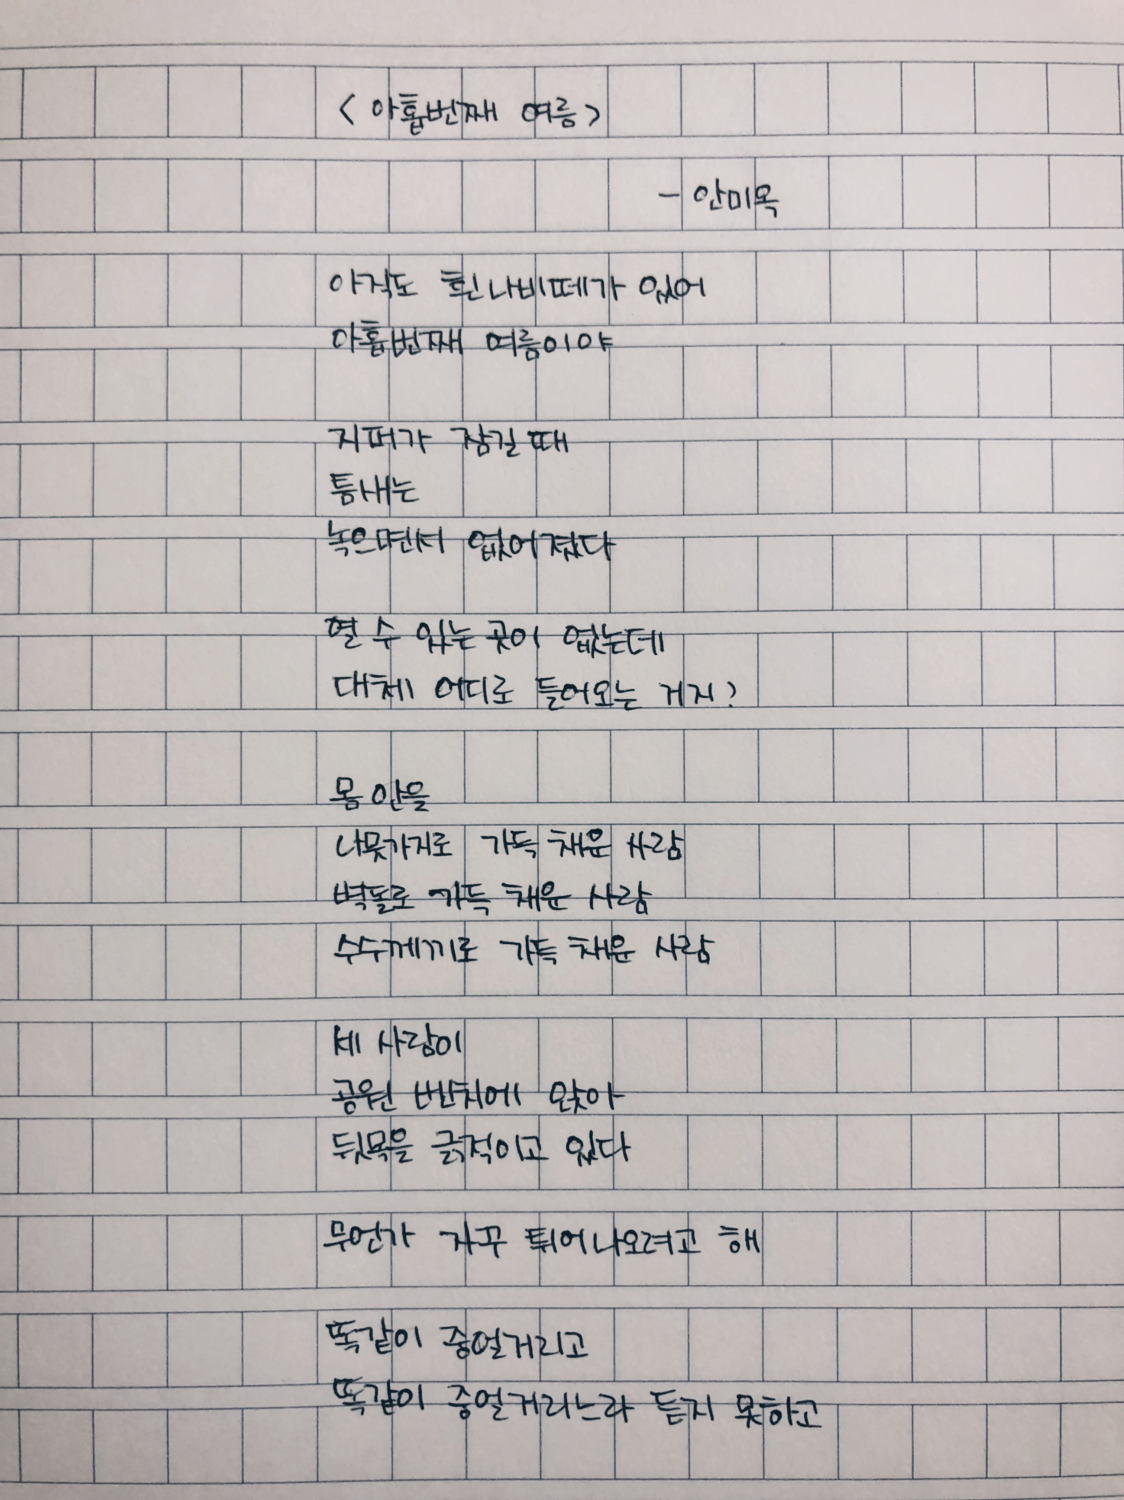 < 아홉번째 여름 >
- 안미옥
아직도 흰나비떼가 있어
아홉번째 여름이야
지퍼가 잠길 때
틈새는
녹으면서 없어졌다
열 수 있는 곳이 없는데
대체 어디로 들어오는 거지?
몸 안을
나뭇가지로 가득 채운 사람
벽돌로 가득 채운 사람
수수께끼로 가득 채운 사람
세 사람이
공원 벤치에 앉아
뒷목을 긁적이고 있다
무언가 자꾸 튀어나오려고 해
똑같이 중얼거리고
똑같이 중얼거리느라 듣지 못하고